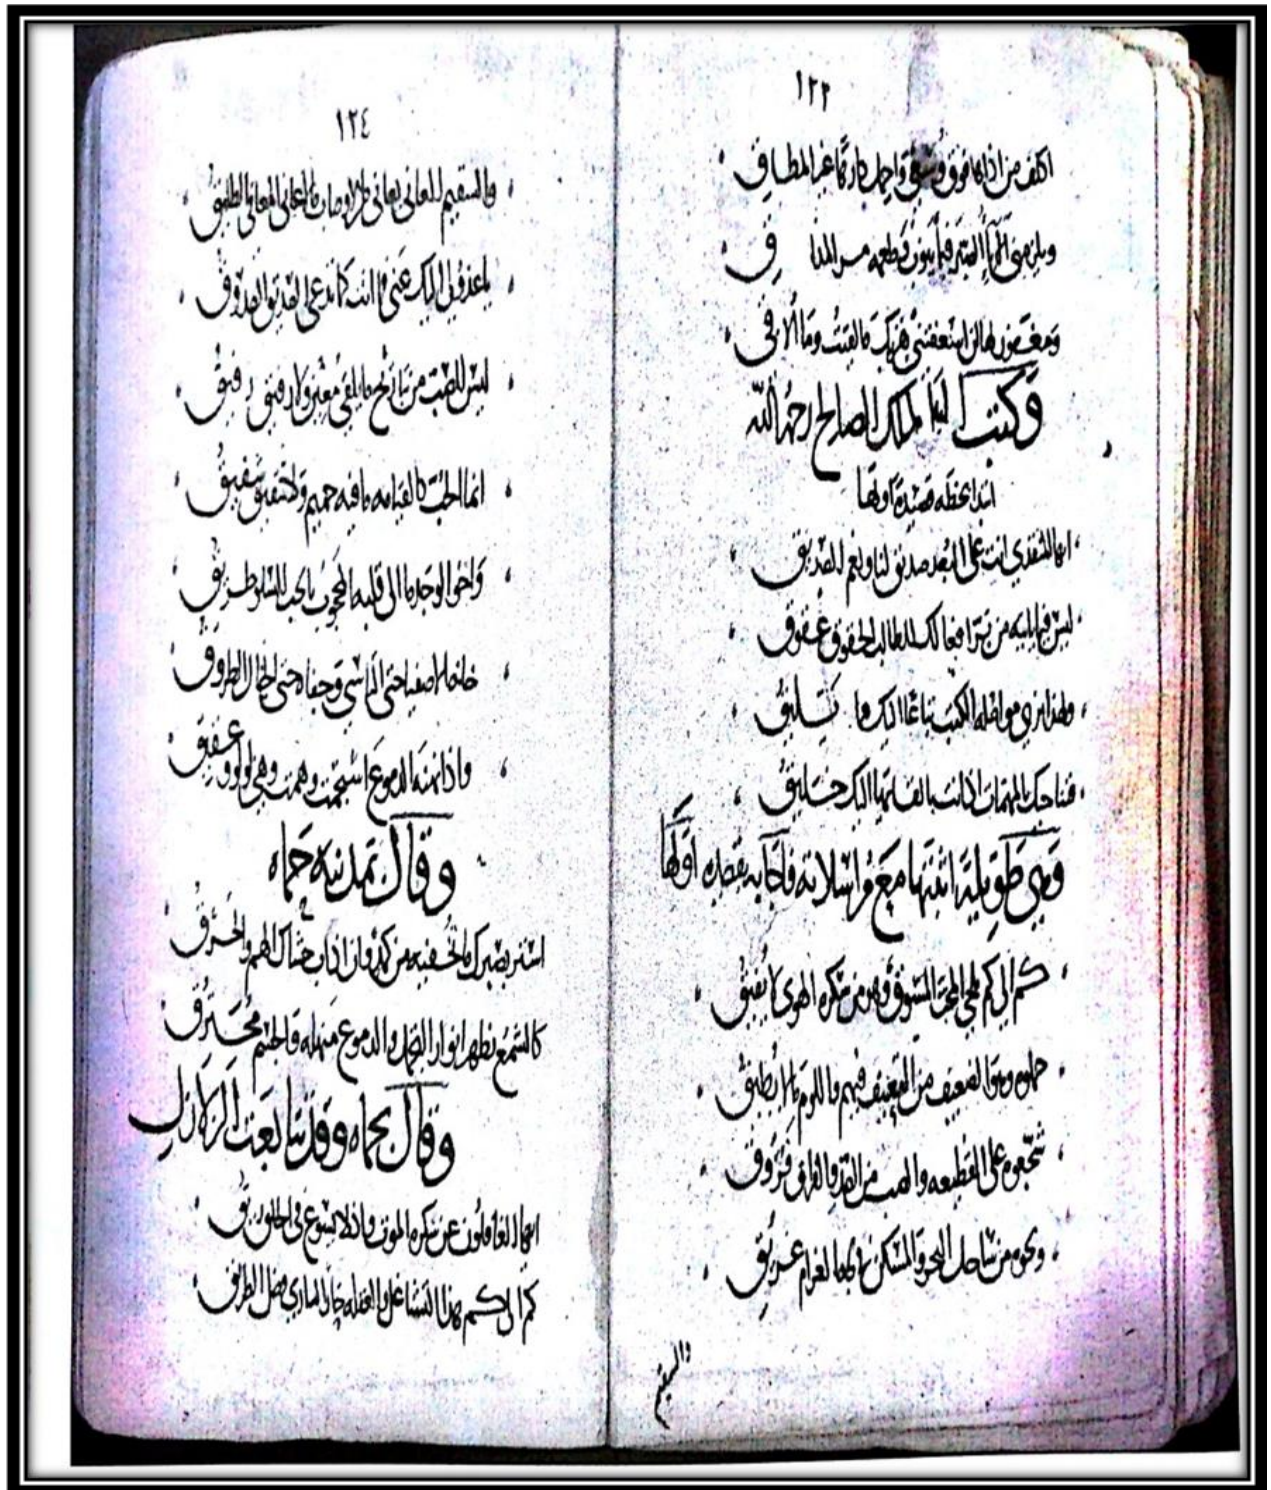 ١٢٢
اكلف من اذاها فوق وسقى واحمل
ويلزمنى
ومعصون لها ان اسعفتنى بقربك ما لقيت وما ألاقى
وكتب اليه الملك الصالح رحمه الله
ابتدا بخطه قصيدة اولها
ايها المنقذي انت على البعد صديق لنا ونعم الصديق
ليس فيما ياتيه من بر افعالك للطالب الحقوق عقوق
ولهذا نرى مواصلة الكتب تباعا اليك مما يليق
نناجيك بالمهمات اذ انت بالقائها اليك خليق
وهي طويلة اثبتها مع مراسلاته فاجابه بقصيده اولها
كم الى كم يلحى المحب المشوق وهو من سكره الهوى لا يفيق
حملوه وهو الضعيف من التعنيف فيهم واللوم ما لا يطيق
شجعوه على القطيعه والصب من الصد والفراق فروق
ودعوه من ساحل البحر والمسكين فى لجة الغرام غريق
والسقيم
١٢٤
والسقيم المعانى يعانى
يا عذولى اليك عنى فما انت كما تدعى الصديق الصدوق
ليس للصب من تباريح ما يلقى معين ولا رفيق رفيق
انما الحب كالقيامه ما فيه حميم ولا شفيق شفيق
واخو الوجد ما الى قلبه المحجوب بالحب للسلو طريق
خانه الاصفياء حتى التاسى وجفاه حتى الخيال الطروق
واذا نهنه الدموع استجمت وهمت وهى لولو وعقيق
وقال بمدينه حماه
استر بصبرك ما تخفيه من كمد وان اذاب حشاك الهم والحرق
كالشمع يظهر انوار التجمل والدموع منهله والجسم محترق
وقال بحماه وقد تتابعت الزلازل
ايها الغافلون عن سكره الموت واذ لا يسوغ فى الحلق ريق
كم الى كم هذا التشاغل والغفله حار السارى وضل الطريق